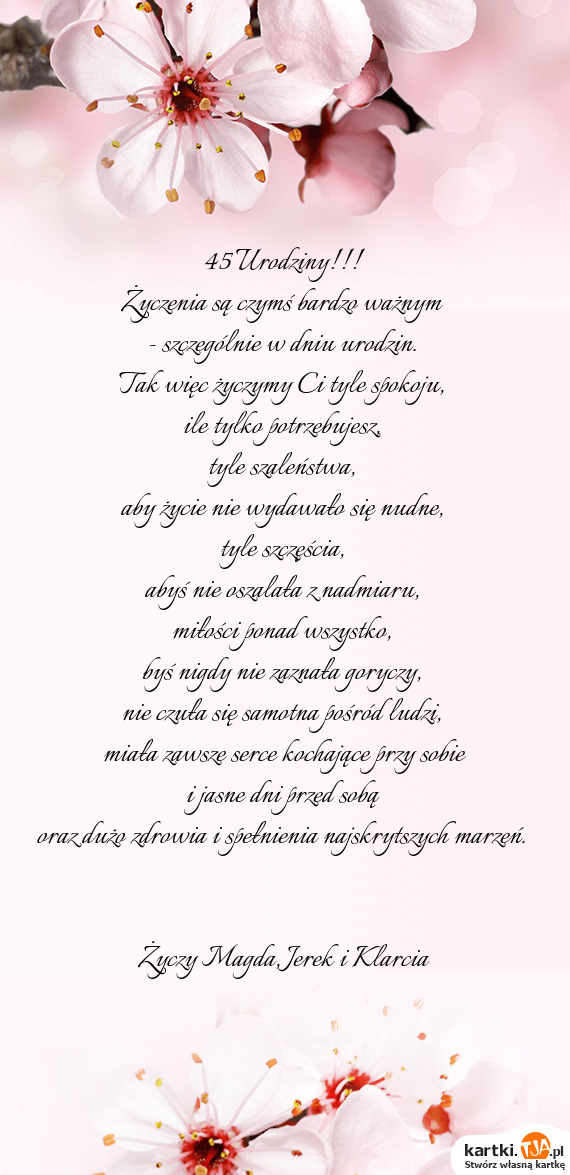 45 Urodziny!!!
Życzenia są czymś bardzo ważnym
- szczególnie w dniu urodzin.
Tak więc życzymy Ci tyle spokoju,
ile tylko potrzebujesz,
tyle szaleństwa,
aby życie nie wydawało się nudne,
tyle szczęścia,
abyś nie oszalała z nadmiaru,
miłości ponad wszystko,
byś nigdy nie zaznała goryczy,
nie czuła się samotna pośród ludzi,
miała zawsze serce kochające przy sobie
i jasne dni przed sobą
oraz dużo zdrowia i spełnienia najskrytszych marzeń.
Życzy Magda,Jerek i Klarcia
kartki.TJA.pl
Stwórz własną kartkę